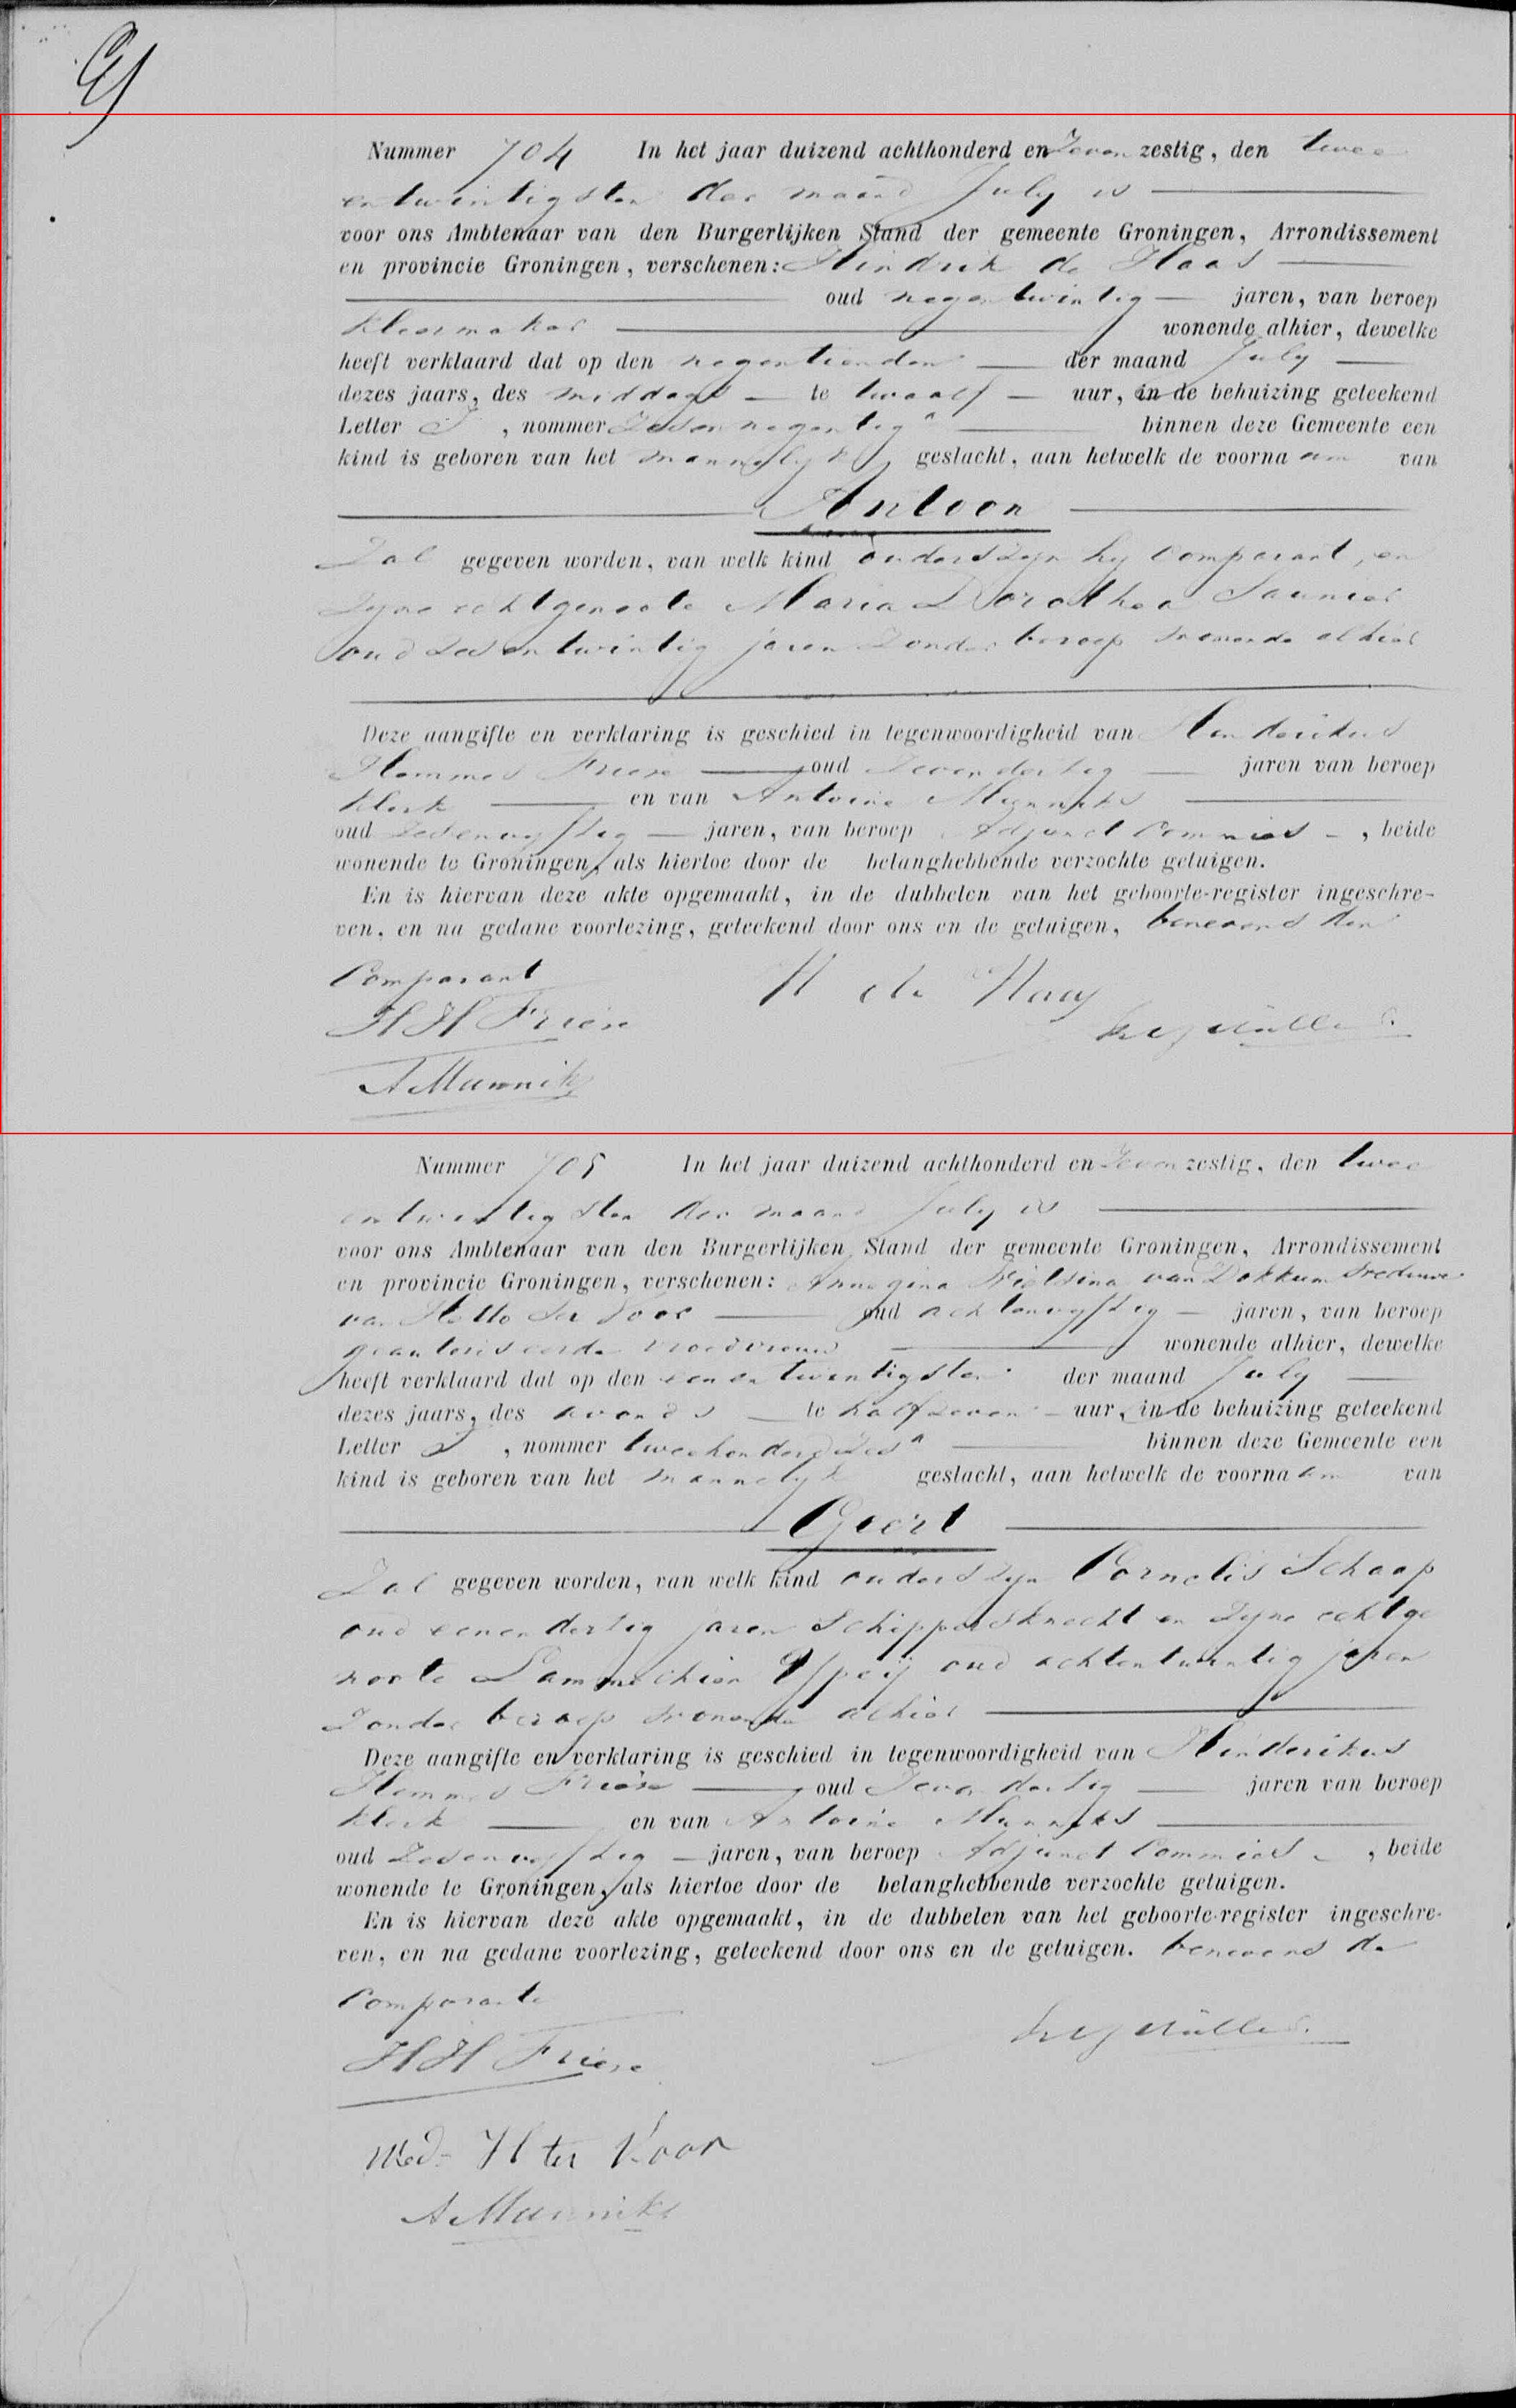 Nummer 704 In het jaar duizend achthonderd en Zeven zestig, den twee
entwintigsten der maand July is
voor ons Ambtenaar van den Burgerlijken Stand der gemeente Groningen, Arrondissement
en provincie Groningen, verschenen: Hindrik de Haas
oud negentwintig jaren, van beroep
kleermaker wonende alhier, dewelke
heeft verklaard dat op den negentienden der maand July
dezes jaars, des middags te twaalf uur, in de behuizing geteekend
Letter , nommer Zesennegentig a binnen deze Gemeente een
kind is geboren van het mannelyk geslacht, aan hetwelk de voorna am van
Antoon
Zal gegeven worden, van welk kind ouders zyn hy comparant, en
Zyne echtgenoote Maria Dorothea Saunier
oud zesentwintig jaren Zonder beroep wonende alhier
Deze aangifte en verklaring is geschied in tegenwoordigheid van Henderikus
Hemmes Friese oud Zevendertig jaren van beroep
Klerk en van Antoine Munniks
oud Zesenvyftig jaren, van beroep Adjunct Commies , beide
wonende te Groningen, als hiertoe door de belanghebbende verzochte getuigen.
En is hiervan deze akte opgemaakt, in de dubbelen van het geboorte-register ingeschre-
ven, en na gedane voorlezing, geteekend door ons en de getuigen, benevens den
Comparant H de Haas
HH Friese
A Munniks
Nummer 705 In het jaar duizend achthonderd en Zeven zestig, den twee
entwintigsten der maand July is
voor ons Ambtenaar van den Burgerlijken Stand der gemeente Groningen, Arrondissement
en provincie Groningen, verschenen: Annegina Wieltsina van Dokkum Weduwe
van Hetto ter Voor oud achtenvyftig jaren, van beroep
geautoriseerde vroedvrouw wonende alhier, dewelke
heeft verklaard dat op den eenentwintigsten der maand July
dezes jaars, des avonds te half zeven uur, in de behuizing geteekend
Letter , nommer tweehonderd zes a binnen deze Gemeente een
kind is geboren van het mannelyk geslacht, aan hetwelk de voorna am van
Geert
Zal gegeven worden, van welk kind ouders zyn Cornelis Schaap
oud eenendertig jaren Schippersknecht en Zyne echtge
noote Lammechien Ypeij oud achtentwintig jaren
Zonder beroep wonende alhier
Deze aangifte en verklaring is geschied in tegenwoordigheid van Henderikus
Hemmes Friese oud Zevendertig jaren van beroep
Klerk en van Antoine Munniks
oud Zesenvyftig jaren, van beroep Adjunct Commies , beide
wonende te Groningen, als hiertoe door de belanghebbende verzochte getuigen.
En is hiervan deze akte opgemaakt, in de dubbelen van het geboorte-register ingeschre-
ven, en na gedane voorlezing, geteekend door ons en de getuigen. benevens de
Comparante
HH Friese
Wed- H ter Voor
A Munniks